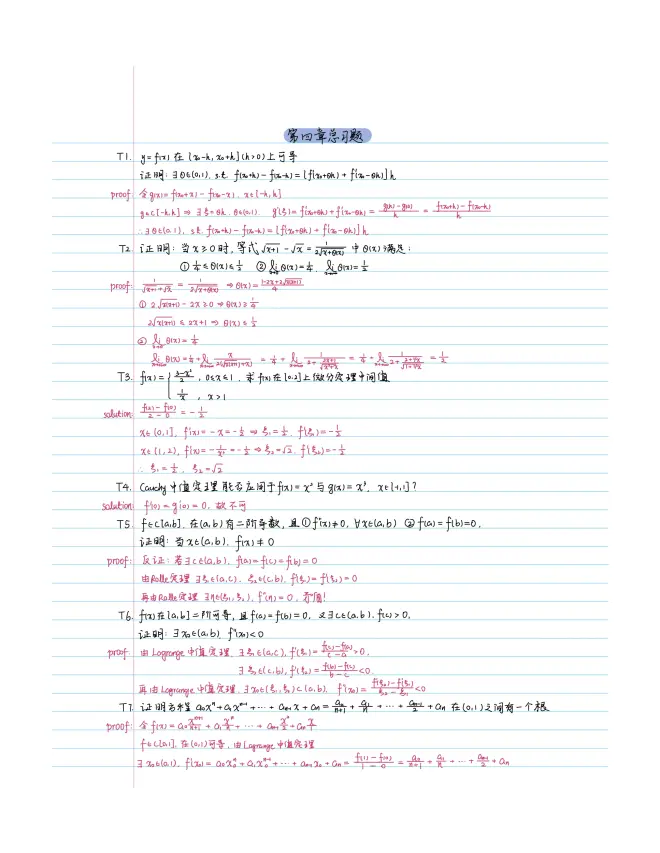 第四章总习题
T1. y=f(x) 在 [x₀-h, x₀+h] (h>0) 上可导
证明: ∃ θ∈(0,1). s.t. f(x₀+h) - f(x₀-h) = [f'(x₀+θh) + f'(x₀-θh)] h
proof: 令 g(x) = f(x₀+x) - f(x₀-x). x∈[-h,h]
g∈C[-h,h] ⇒ ∃ ξ=θh. θ∈(0,1). g'(ξ) = f'(x₀+θh) + f'(x₀-θh) = (g(h)-g(0))/h = (f(x₀+h)-f(x₀-h))/h
∴ ∃ θ∈(0,1), s.t. f(x₀+h) - f(x₀-h) = [f'(x₀+θh) + f'(x₀-θh)] h
T2. 证明: 当 x≥0 时, 等式 √(x+1) - √x = 1/(2√(x+θ(x))) 中 θ(x) 满足:
① 1/4 ≤ θ(x) ≤ 1/2 ② lim θ(x) = 1/4. lim θ(x) = 1/2
proof: 1/(√(x+1)+√x) = 1/(2√(x+θ(x))) ⇒ θ(x) = (1-2x+2√(x(x+1)))/4
① 2√(x(x+1)) - 2x ≥ 0 ⇒ θ(x) ≥ 1/4
2√(x(x+1)) ≤ 2x+1 ⇒ θ(x) ≤ 1/2
② lim θ(x) = 1/4
lim θ(x) = 1/4 + lim x/(2(√(x(x+1))+x)) = 1/4 + lim
T3. f(x) = { (3-x²)/2, 0≤x≤1. 求 f(x) 在 [0,2] 上微分定理中间值
1/x, x>1
solution: (f(2)-f(0))/(2-0) = -1/2
x∈(0,1], f'(x) = -x = -1/2 ⇒ ξ₁ = 1/2. f'(ξ₁) = -1/2
x∈(1,2), f'(x) = -1/x² = -1/2 ⇒ ξ₂ = √2. f'(ξ₂) = -1/2
∴ ξ₁ = 1/2. ξ₂ = √2
T4. Cauchy 中值定理能否应用于 f(x) = x² 与 g(x) = x³, x∈[-1,1]?
solution: f'(0) = g'(0) = 0, 故不可
T5. f∈C[a,b]. 在 (a,b) 有二阶导数, 且 ① f''(x)≠0, ∀x∈(a,b) ② f(a) = f(b) = 0.
证明: 当 x∈(a,b). f(x) ≠ 0
proof: 反证: 若 ∃ c∈(a,b). f(a) = f(c) = f(b) = 0
由 Rolle 定理 ∃ ξ₁∈(a,c). ξ₂∈(c,b). f'(ξ₁) = f'(ξ₂) = 0
再由 Rolle 定理 ∃ η∈(ξ₁,ξ₂). f''(η) = 0. 矛盾!
T6. f(x) 在 [a,b] 二阶可导, 且 f(a) = f(b) = 0. 又 ∃ c∈(a,b). f(c) > 0.
证明: ∃ x₀∈(a,b). f''(x₀) < 0
proof: 由 Lagrange 中值定理. ∃ ξ₁∈(a,c), f'(ξ₁) = (f(c)-f(a))/(c-a) > 0.
∃ ξ₂∈(c,b), f'(ξ₂) = (f(b)-f(c))/(b-c) < 0.
再由 Lagrange 中值定理. ∃ x₀∈(ξ₁,ξ₂)⊂(a,b). f''(x₀) = (f'(ξ₂)-f'(ξ₁))/(ξ₂-ξ₁) < 0
T7. 证明方程 a₀xⁿ + a₁xⁿ⁻¹ + ··· + aₙ₋₁x + aₙ = a₀/(n+1) + a₁/n + ··· + aₙ₋₁/2 + aₙ 在 (0,1) 之间有一个根
proof: 令 f(x) = a₀ xⁿ⁺¹/(n+1) + a₁ xⁿ/n + ··· + aₙ₋₁ x²/2 + aₙ x
f∈C[0,1]. 在 (0,1) 可导. 由 Lagrange 中值定理
∃ x₀∈(0,1). f'(x₀) = a₀x₀ⁿ + a₁x₀ⁿ⁻¹ + ··· + aₙ₋₁x₀ + aₙ = (f(1)-f(0))/(1-0) = a₀/(n+1) + a₁/n + ··· + aₙ₋₁/2 + aₙ